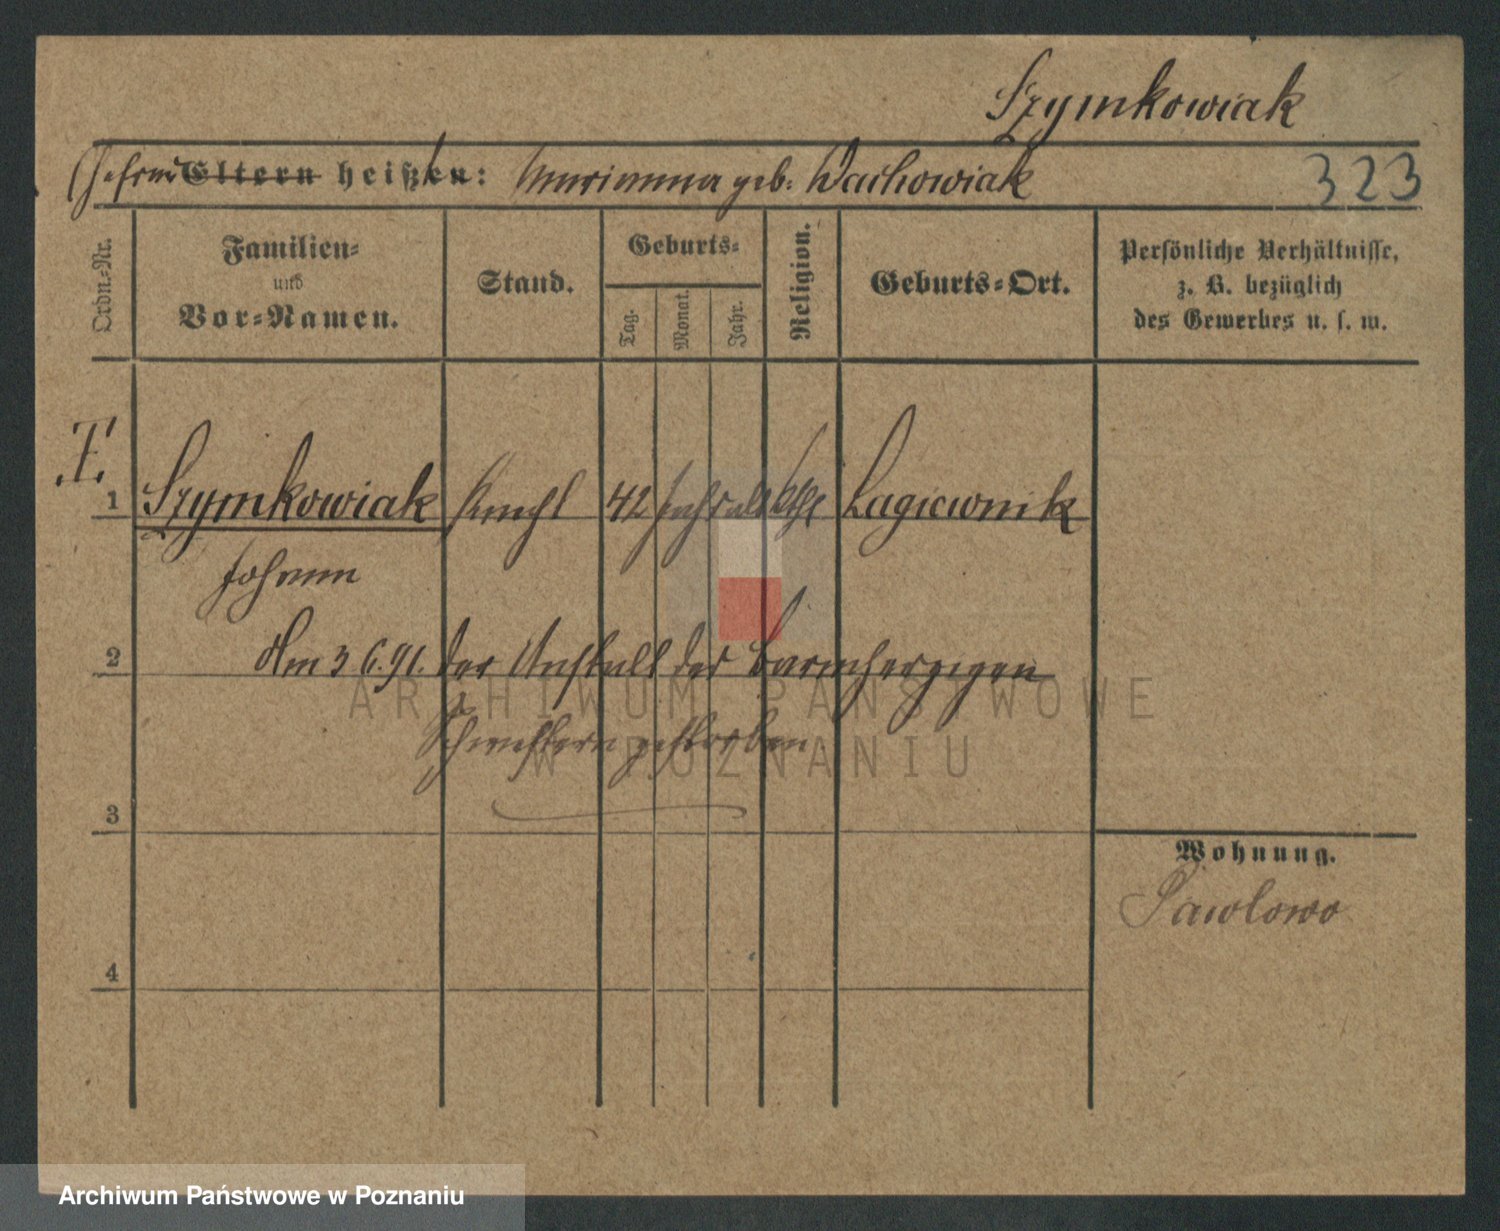 Szymkowiak
Ehefrau Eltern heißt en: Marianna geb. Wachowiak 323
Ordn.-Nr.
Familien-
und
Vor-Namen.
Stand.
Geburts-
Tag.
Monat.
Jahr.
Religion.
Geburts-Ort.
Persönliche Verhältnisse,
z. B. bezüglich
des Gewerbes u. s. w.
1 Szymkowiak Knecht 42 Jahr alt kath Lagiewnik
Johann
2 Am 3 6.91. der Anstalt der barmherzigen
Schwestern gestorben
3
Wohnung.
Pawlowo
4
ARCHIWUM PAŃSTWOWE
W POZNANIU
Archiwum Państwowe w Poznaniu